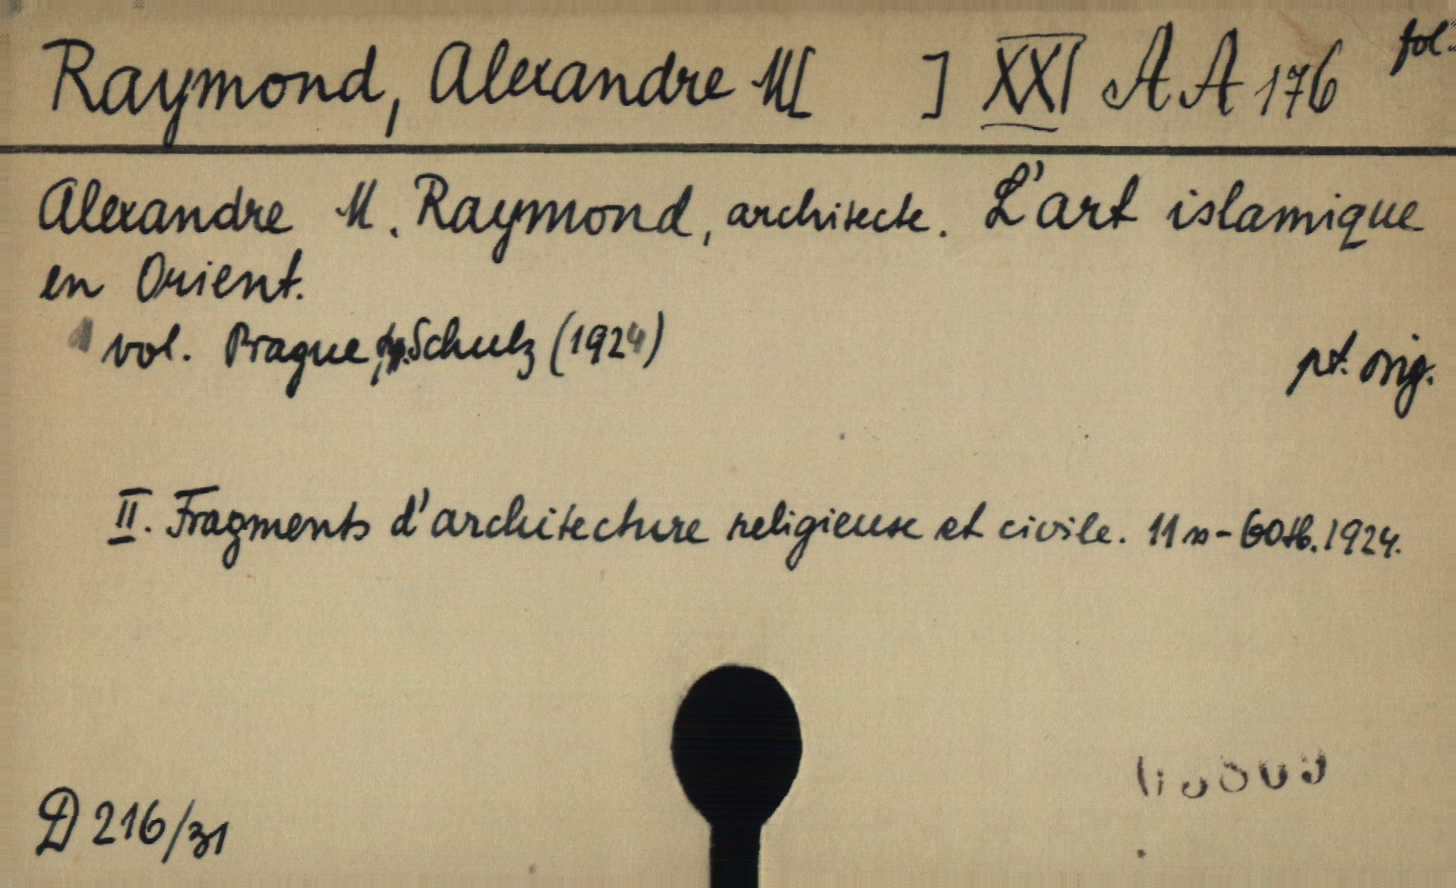 Raymond, Alexandre M[ ] XXI A A 176 fol.
Alexandre M. Raymond, architecte. L'art islamique
en Orient.
vol. Prague, typ. Schulz (1924)
pt. orig.
II. Fragments d'architecture religieuse et civile. 11 s - 60 tb. 1924.
D 216/31